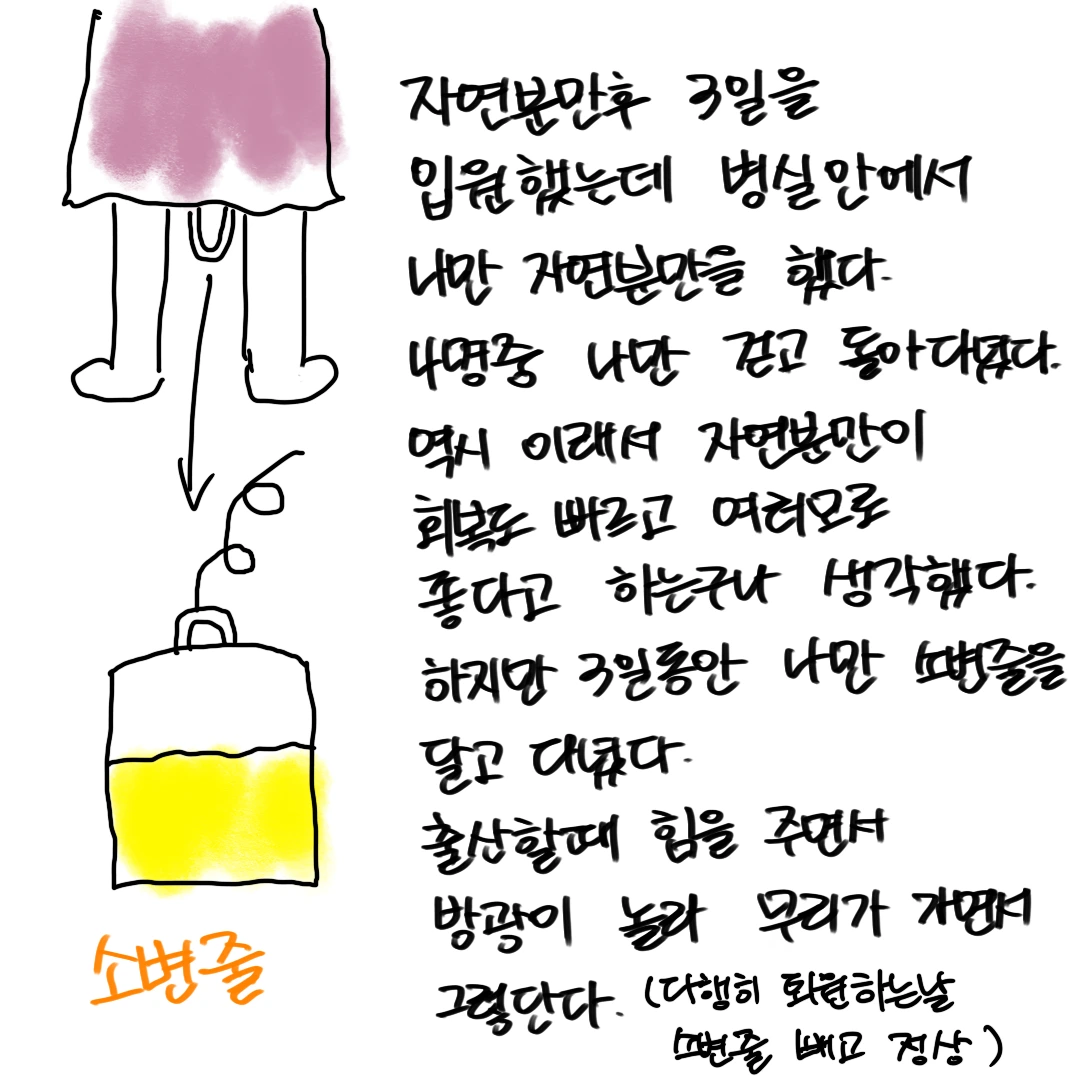 자연분만후 3일을
입원했는데 병실안에서
나만 자연분만을 했다.
4명중 나만 걷고 돌아다녔다.
역시 이래서 자연분만이
회복도 빠르고 여러모로
좋다고 하는구나 생각했다.
하지만 3일동안 나만 소변줄을
달고 다녔다.
출산할때 힘을 주면서
방광이 놀라 무리가 가면서
그렇단다. (다행히 퇴원하는날
소변줄 빼고 정상)
소변줄